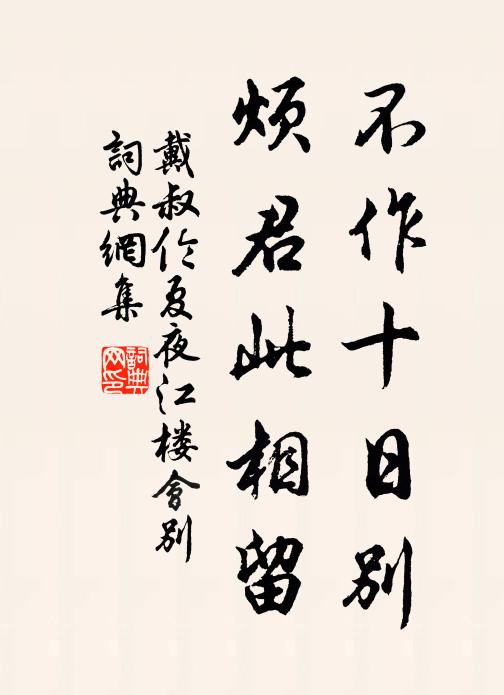 不作十日别
烦君此相留
戴叔伦夏夜江楼會别
詞典網集
詞典网印